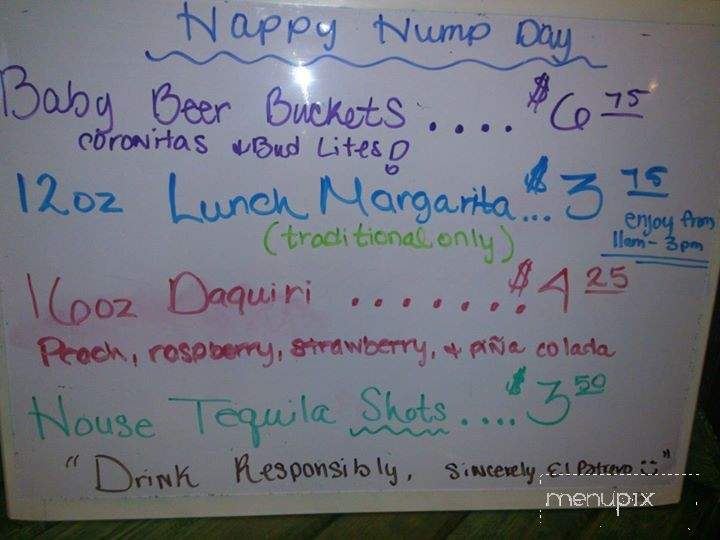 Happy Hump Day
Baby Beer Buckets .... $6 75
coronitas & Bud Lites!
12oz Lunch Margarita... $3 75
(traditional only)
enjoy from
11am - 3pm
16oz Daquiri ........ $4 25
Peach, raspberry, strawberry, & piña colada
House Tequila Shots .... $3 50
"Drink Responsibly, Sincerely El Patron :)"
menupix